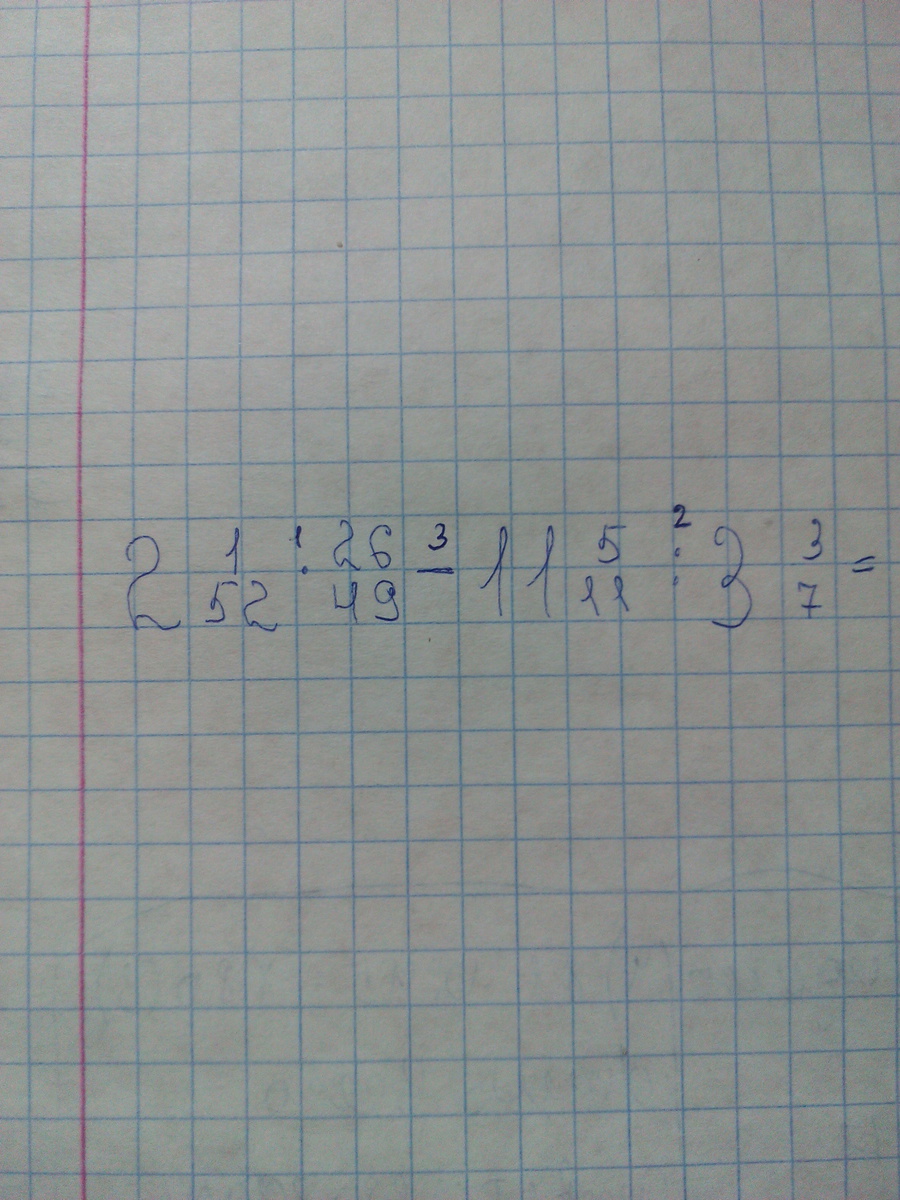 2 1/52 ·¹ 26/49 -³ 11 5/11 :² 3 3/7 =